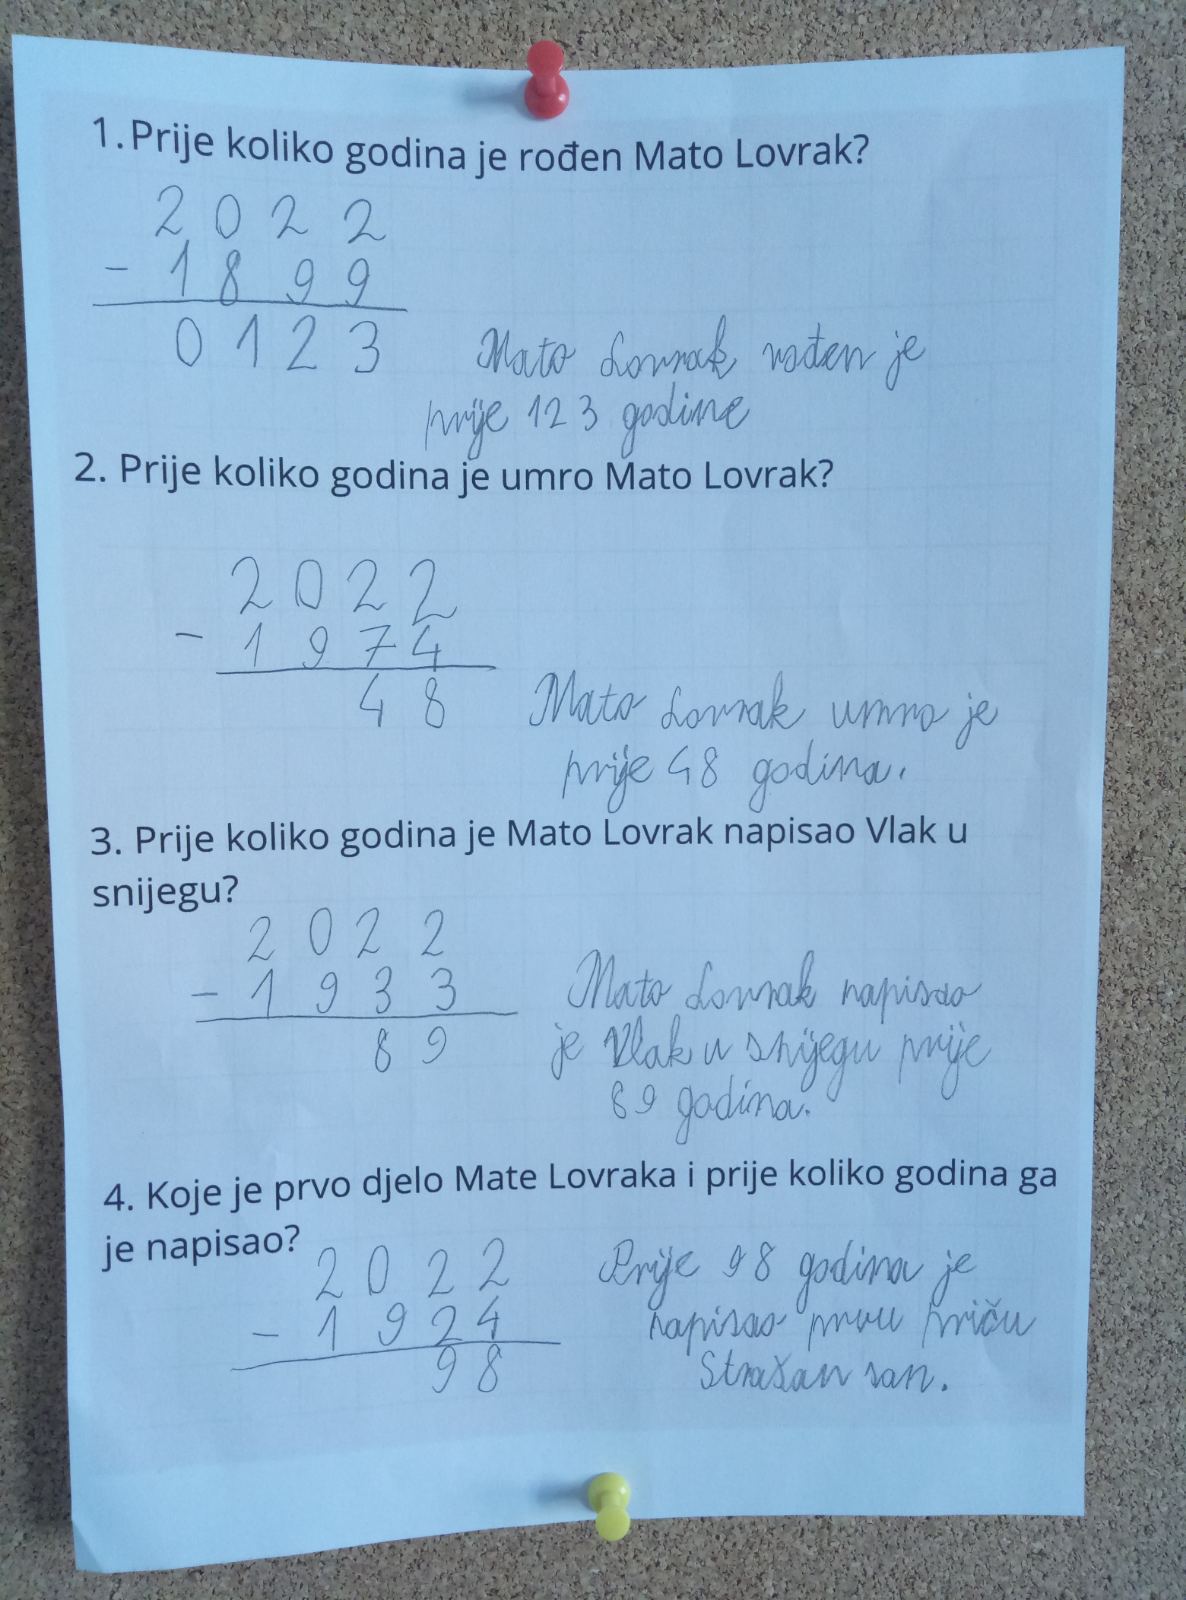 1. Prije koliko godina je rođen Mato Lovrak?
2022
- 1899
0123
Mato Lovrak rođen je
prije 123 godine
2. Prije koliko godina je umro Mato Lovrak?
2022
- 1974
48
Mato Lovrak umro je
prije 48 godina.
3. Prije koliko godina je Mato Lovrak napisao Vlak u
snijegu?
2022
- 1933
89
Mato Lovrak napisao
je Vlak u snijegu prije
89 godina.
4. Koje je prvo djelo Mate Lovraka i prije koliko godina ga
je napisao?
2022
- 1924
98
Prije 98 godina je
napisao prvu priču
Strašan san.